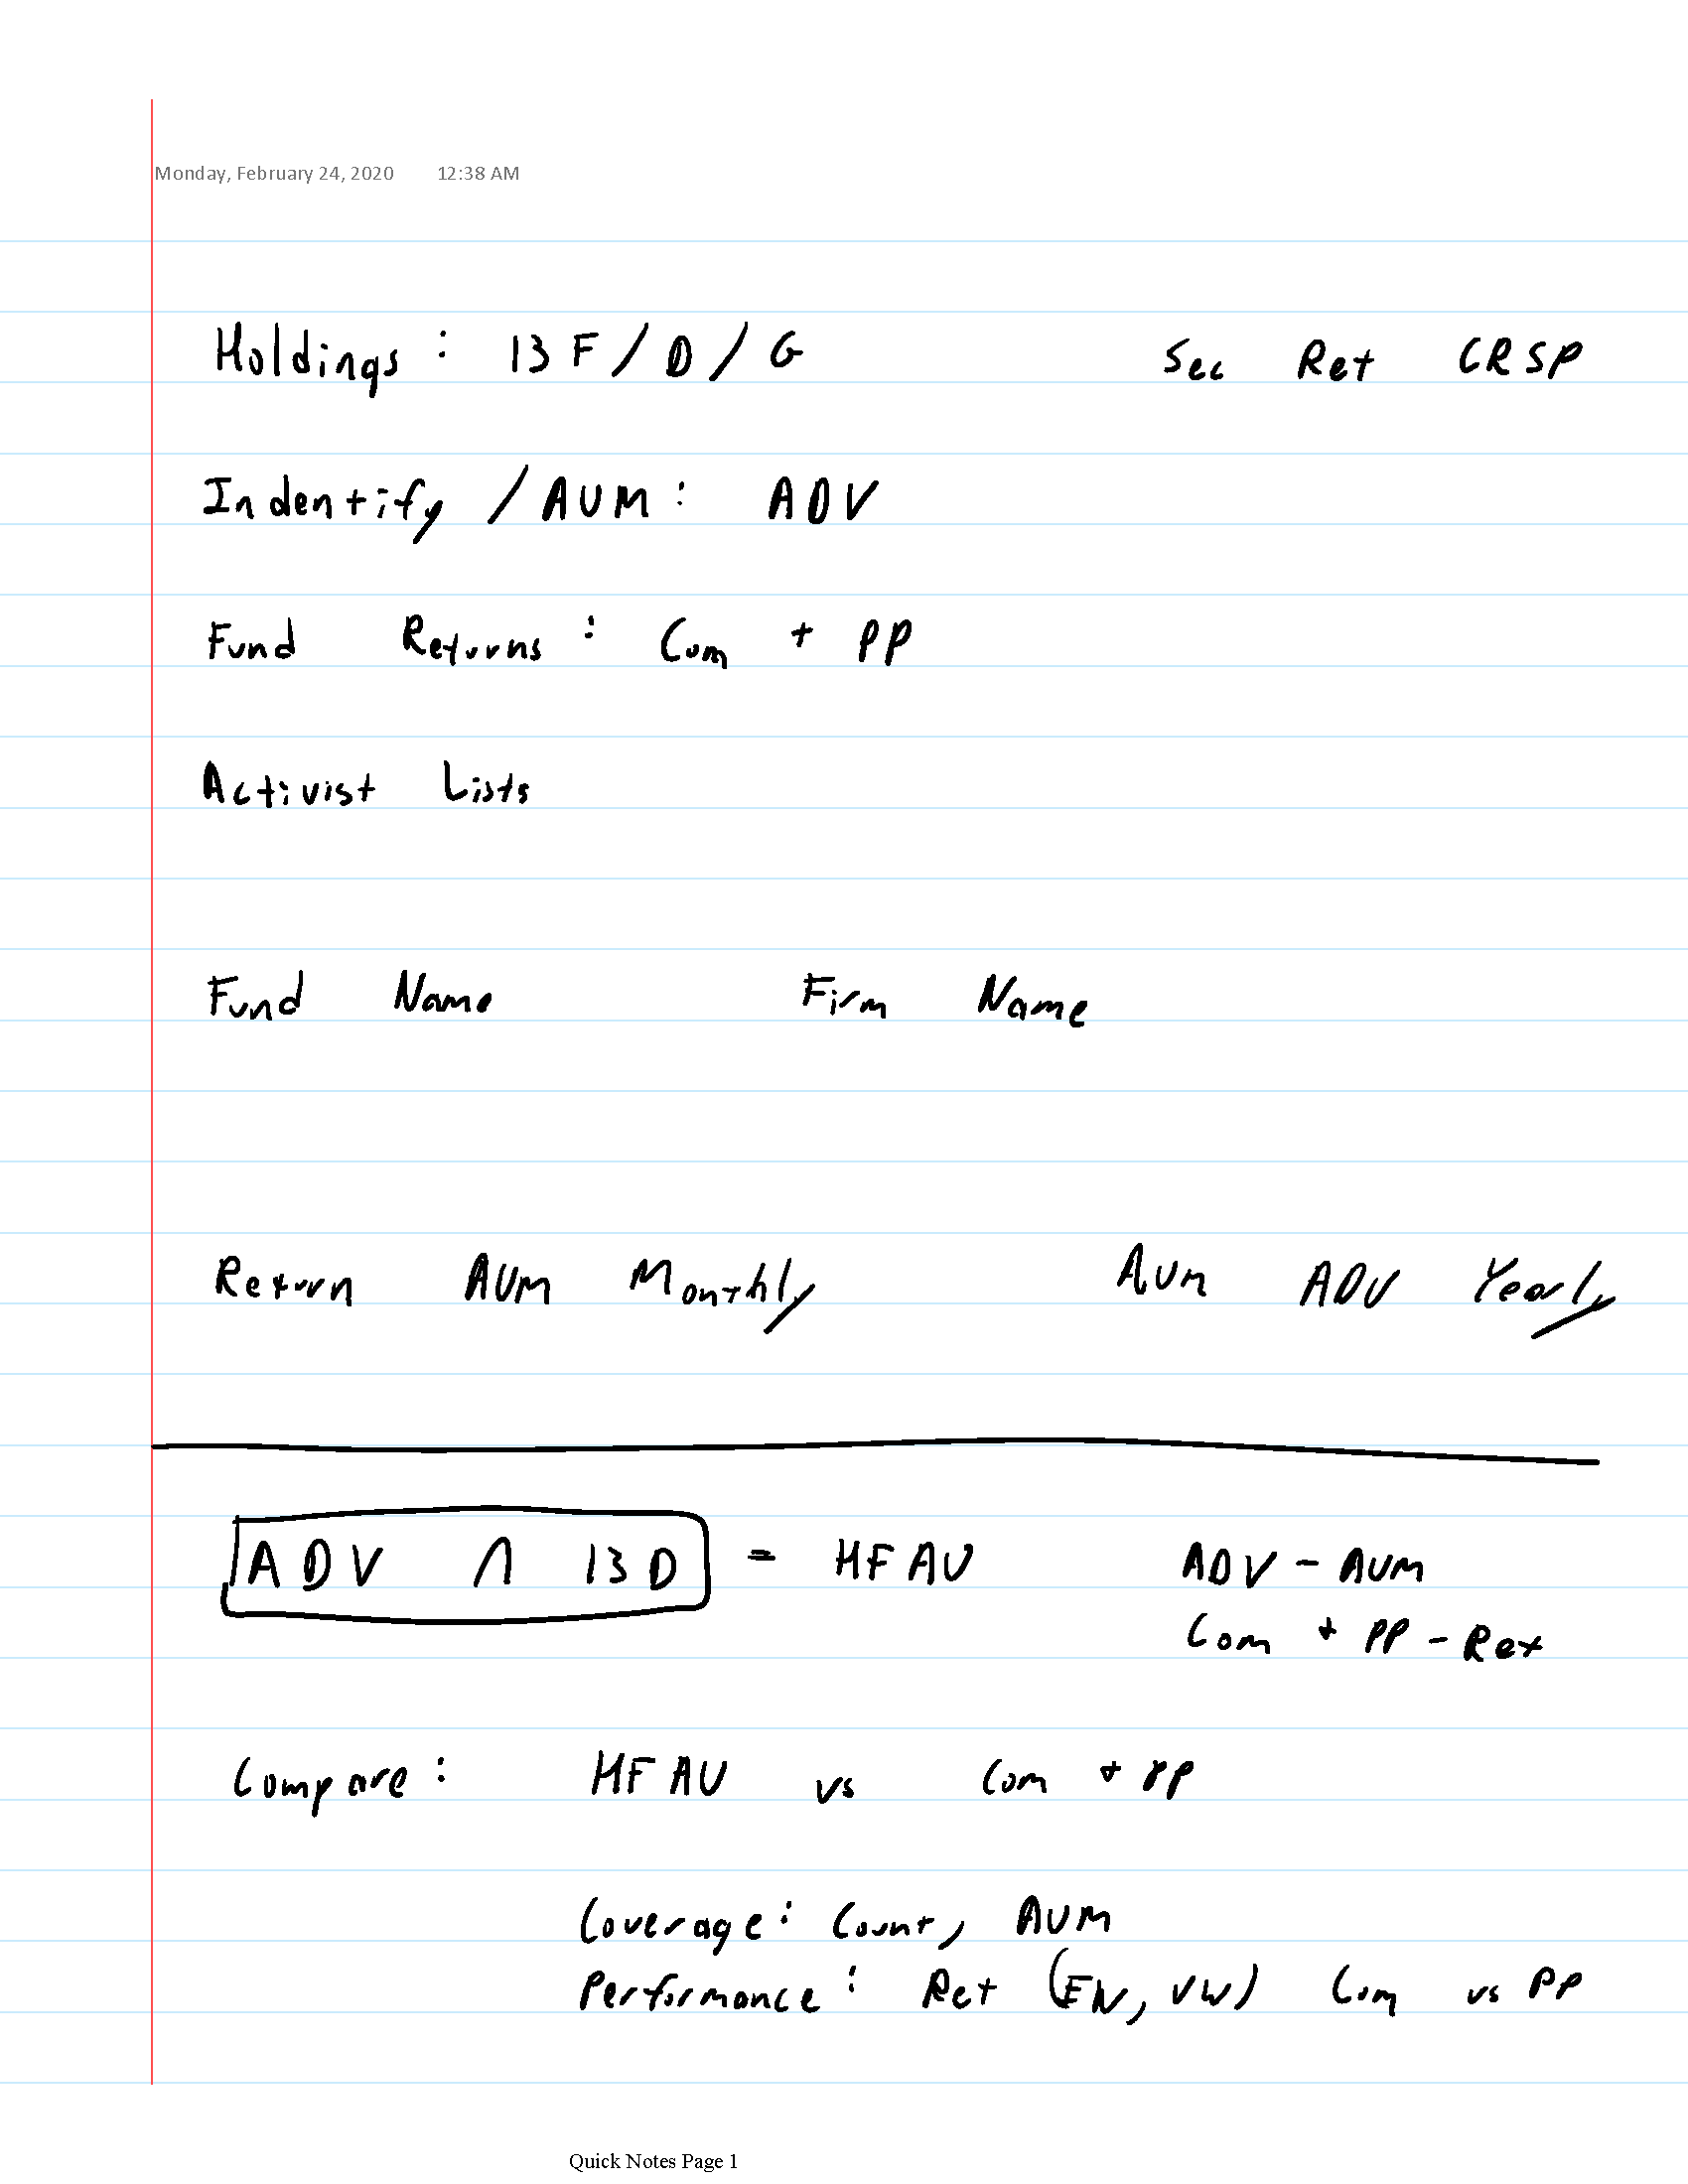 Monday, February 24, 2020 12:38 AM
Holdings: 13 F / D / G Sec Ret CRSP
Indentify / AUM: ADV
Fund Returns: Com + PP
Activist Lists
Fund Name Firm Name
Return AUM Monthly AUM ADV Yearly
ADV ∩ 13D = HFAU ADV - AUM
Com + PP - Ret
Compare: HFAU vs Com + PP
Coverage: Count, AUM
Performance: Ret (EW, VW) Com vs PP
Quick Notes Page 1